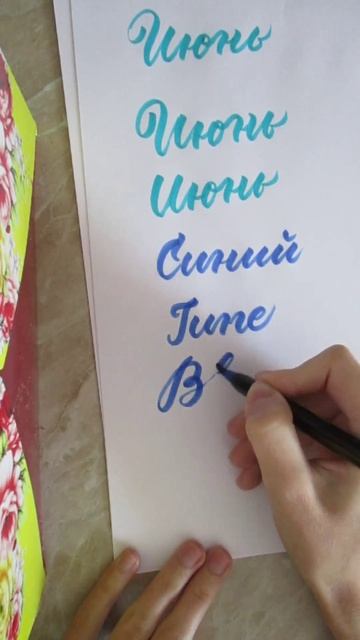 Июнь
Июнь
Июнь
Синий
June
B